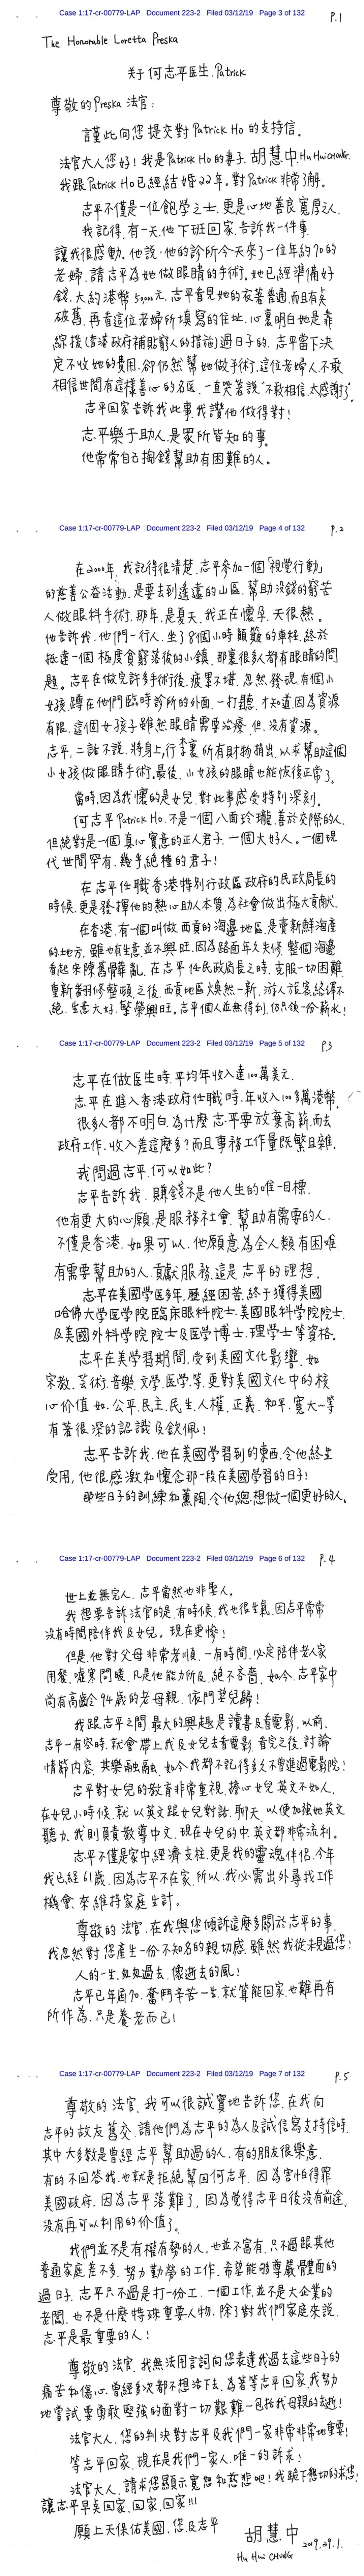 Case 1:17-cr-00779-LAP Document 223-2 Filed 03/12/19 Page 3 of 132
P.1
The Honorable Loretta Preska
关于 何志平医生. Patrick
尊敬的 Preska 法官：
謹此向您提交對 Patrick Ho 的支持信。
法官大人您好！我是 Patrick Ho 的妻子. 胡慧中. Hu Hui CHUNG.
我跟 Patrick Ho 已經結婚22年。對 Patrick 非常了解。
志平不僅是一位飽學之士. 更是心地善良寬厚之人.
我記得. 有一天. 他下班回家. 告訴我一件事.
讓我很感動。他說. 他的診所今天來了一位年約70的
老婦. 請志平為她做眼睛的手術. 她已經準備好
錢. 大約港幣50000元. 志平看見她的衣著普通. 而且有点
破舊. 再看這位老婦所填寫的住址. 心裏明白她是靠
綜援(香港政府補貼窮人的措施)過日子的. 志平當下決
定不收她的費用. 卻仍然幫她做手術. 這位老婦人. 不敢
相信世間有這樣善心的名医. 一直哭着說 "不敢相信. 太感謝了".
志平回家告訴我此事. 我讚他做得對！
志平樂于助人. 是眾所皆知的事.
他常常自己掏錢幫助有困難的人。
Case 1:17-cr-00779-LAP Document 223-2 Filed 03/12/19 Page 4 of 132
P.2
在2000年. 我記得很清楚. 志平参加一個「視覺行動」
的慈善公益活動. 是要去到遙遠的山區. 幫助没錢的窮苦
人做眼科手術. 那年. 是夏天. 我正在懷孕. 天很熱.
他告訴我. 他們一行人. 坐了8個小時顛簸的車程. 終於
抵達一個極度貧窮落後的小鎮. 那裏很多人都有眼睛的問
題。志平在做完許多手術後. 疲累不堪. 忽然發現. 有個小
女孩. 蹲在他們臨時診所的外面. 一打聽. 才知道. 因為資源
有限. 這個女孩子雖然眼睛需要治療. 但. 没有資源。
志平. 二話不說. 將身上. 行李裏所有財物捐出. 以求幫助這個
小女孩做眼睛手術. 最後. 小女孩的眼睛也能恢復正常了.
當時. 因為我懷的是女兒. 對此事感受特別深刻.
何志平 Patrick Ho. 不是一個八面玲瓏. 善於交際的人.
但絕對是一個真心實意的正人君子. 一個大好人. 一個現
代世間罕有. 幾乎絕種的君子！
在志平任職香港特別行政區政府的民政局長的
時候. 更是發揮他的熱心助人本質. 為社會做出極大貢献.
在香港. 有一個叫做西貢的海邊地區. 是賣新鮮海產
的地方. 雖也有生意. 並不興旺. 因為路面年久失修. 整個海邊
看起來陳舊髒亂. 在志平任民政局長之時. 克服一切困難.
重新翻修整頓. 之後. 西貢地區大煥然一新. 游人旅客絡繹不
絕. 生意大好. 繁榮興旺. 志平個人並無得利. 仍只領一份薪水！
Case 1:17-cr-00779-LAP Document 223-2 Filed 03/12/19 Page 5 of 132
P.3
志平在做医生時. 平均年收入達100萬美元.
志平在進入香港政府任職時. 年收入100多萬港幣.
很多人都不明白. 為什麼志平要放棄高薪. 而去
政府工作. 收入差這麼多？而且事務工作量既繁且雜.
我問過志平. 何以如此？
志平告訴我. 賺錢不是他人生的唯一目標.
他有更大的心願. 是服務社會. 幫助有需要的人.
不僅是香港. 如果可以. 他願意為全人類有困难
有需要幫助的人. 貢獻服務. 這是志平的理想.
志平在美國學医多年. 歷經困苦. 終于獲得美國
哈佛大学医学院臨床眼科院士. 美國眼科学院院士.
及美國外科學院院士及医学博士. 理學士等資格.
志平在美學習期間. 受到美國文化影響. 如
宗教. 芸術. 音樂. 文學. 医學. 等. 更對美國文化中的核
心价值 如. 公平. 民主. 民生. 人權. 正義. 和平. 寬大~等
有著很深的認識及欽佩！
志平告訴我. 他在美國學習到的東西. 令他終生
受用. 他很感激和懷念那一段在美國學習的日子！
那些日子的訓練和薰陶. 令他總想做一個更好的人.
Case 1:17-cr-00779-LAP Document 223-2 Filed 03/12/19 Page 6 of 132
P.4
世上並無完人. 志平當然也非聖人.
我想要告訴法官的是. 有時候. 我也很生氣. 因志平常常
没有時間陪伴我及女兒。現在更慘！
但是. 他對父母非常孝順. 一有時間. 必定陪伴老人家
用餐. 噓寒問暖. 凡是他能力所及. 絕不吝嗇. 如今. 志平家中
尚有高齡94歲的老母親. 依门望兒歸！
我跟志平之間 最大的興趣是讀書及看電影. 以前.
志平一有空時. 就會帶上我及女兒去看電影. 看完之後. 討論
情節内容. 其樂融融. 如今我都不記得多久不曾進過電影院！
志平對女兒的教育非常重視. 擔心女兒英文不如人.
在女兒小時候. 就以英文跟女兒對話. 聊天. 以便加強她英文
聽力. 我則負責教導中文. 現在女兒的中. 英文都非常流利。
志平不僅是家中經濟支柱. 更是我的靈魂伴侣. 今年
我已經61歲. 因為志平不在家. 所以. 我必需出外尋找工作
機會. 來維持家庭生計。
尊敬的法官. 在我與您傾訴這麼多關於志平的事.
我忽然對您產生一份不知名的親切感. 雖然我從未見過您！
人的一生. 匆匆過去. 像逝去的風！
志平已年屆70. 奮鬥辛苦一生. 就算能回家也難再有
所作為. 只是養老而已！
Case 1:17-cr-00779-LAP Document 223-2 Filed 03/12/19 Page 7 of 132
P.5
尊敬的法官. 我可以很誠實地告訴您. 在我向
志平的故友舊交. 請他們為志平的為人及誠信寫支持信時.
其中大多數是曾經志平幫助過的人. 有的朋友很樂意.
有的不回答我. 也就是拒絕幫回何志平. 因為害怕得罪
美國政府. 因為志平落難了. 因為覺得志平日後没有前途.
没有再可以利用的价值了。
我們並不是有權有勢的人. 也並不富有. 只不過跟其他
普通家庭差不多. 努力勤勞的工作. 希望能够尊嚴體面的
過日子. 志平只不過是打一份工. 一個工作. 並不是大企業的
老闆. 也不是什麼特殊重要人物. 除了對我們家庭來說.
志平是最重要的人！
尊敬的法官. 我無法用言詞向您表達我過去這些日子的
痛苦和傷心. 曾經多次都不想活下去. 為著等志平回家. 我努力
地嘗試要勇敢堅強的面對一切艱難—包括我母親的去逝！
法官大人. 您的判決對志平及我們一家非常非常地重要！
等志平回家. 現在是我們一家人. 唯一的訴求！
法官大人. 請求您顯示寬恕和慈悲吧！我跪下懇切的求您！
讓志平早點回家. 回家. 回家!!!
願上天保佑美國. 您. 及志平
胡慧中
Hu Hui CHUNG